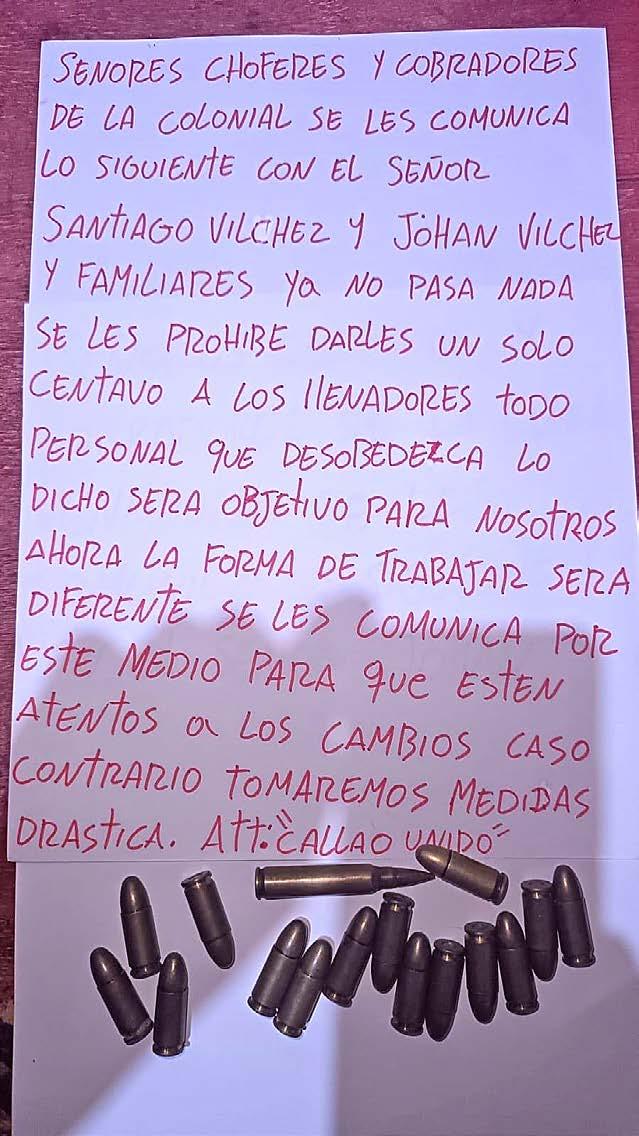 SEÑORES CHOFERES Y COBRADORES
DE LA COLONIAL SE LES COMUNICA
LO SIGUIENTE CON EL SEÑOR
SANTIAGO VILCHEZ Y JOHAN VILCHEZ
Y FAMILIARES Ya NO PASA NADA
SE LES PROHIBE DARLES UN SOLO
CENTAVO A LOS llENADORES tODO
PERSONAL qUE DESOBEDEZCA LO
DICHO SERA OBJEtIVO PARA NOSOTROS
AHORA LA FORMA DE TRABAJAR SERA
DIFERENtE SE LES COMUNICA POR
ESTE MEDIO PARA que ESTEN
ATENTOS a LOS CAMBIOS CASO
CONTRARIO TOMAREMOS MEDIDAS
DRASTICA. ATT: "CALLAO UNIDO"